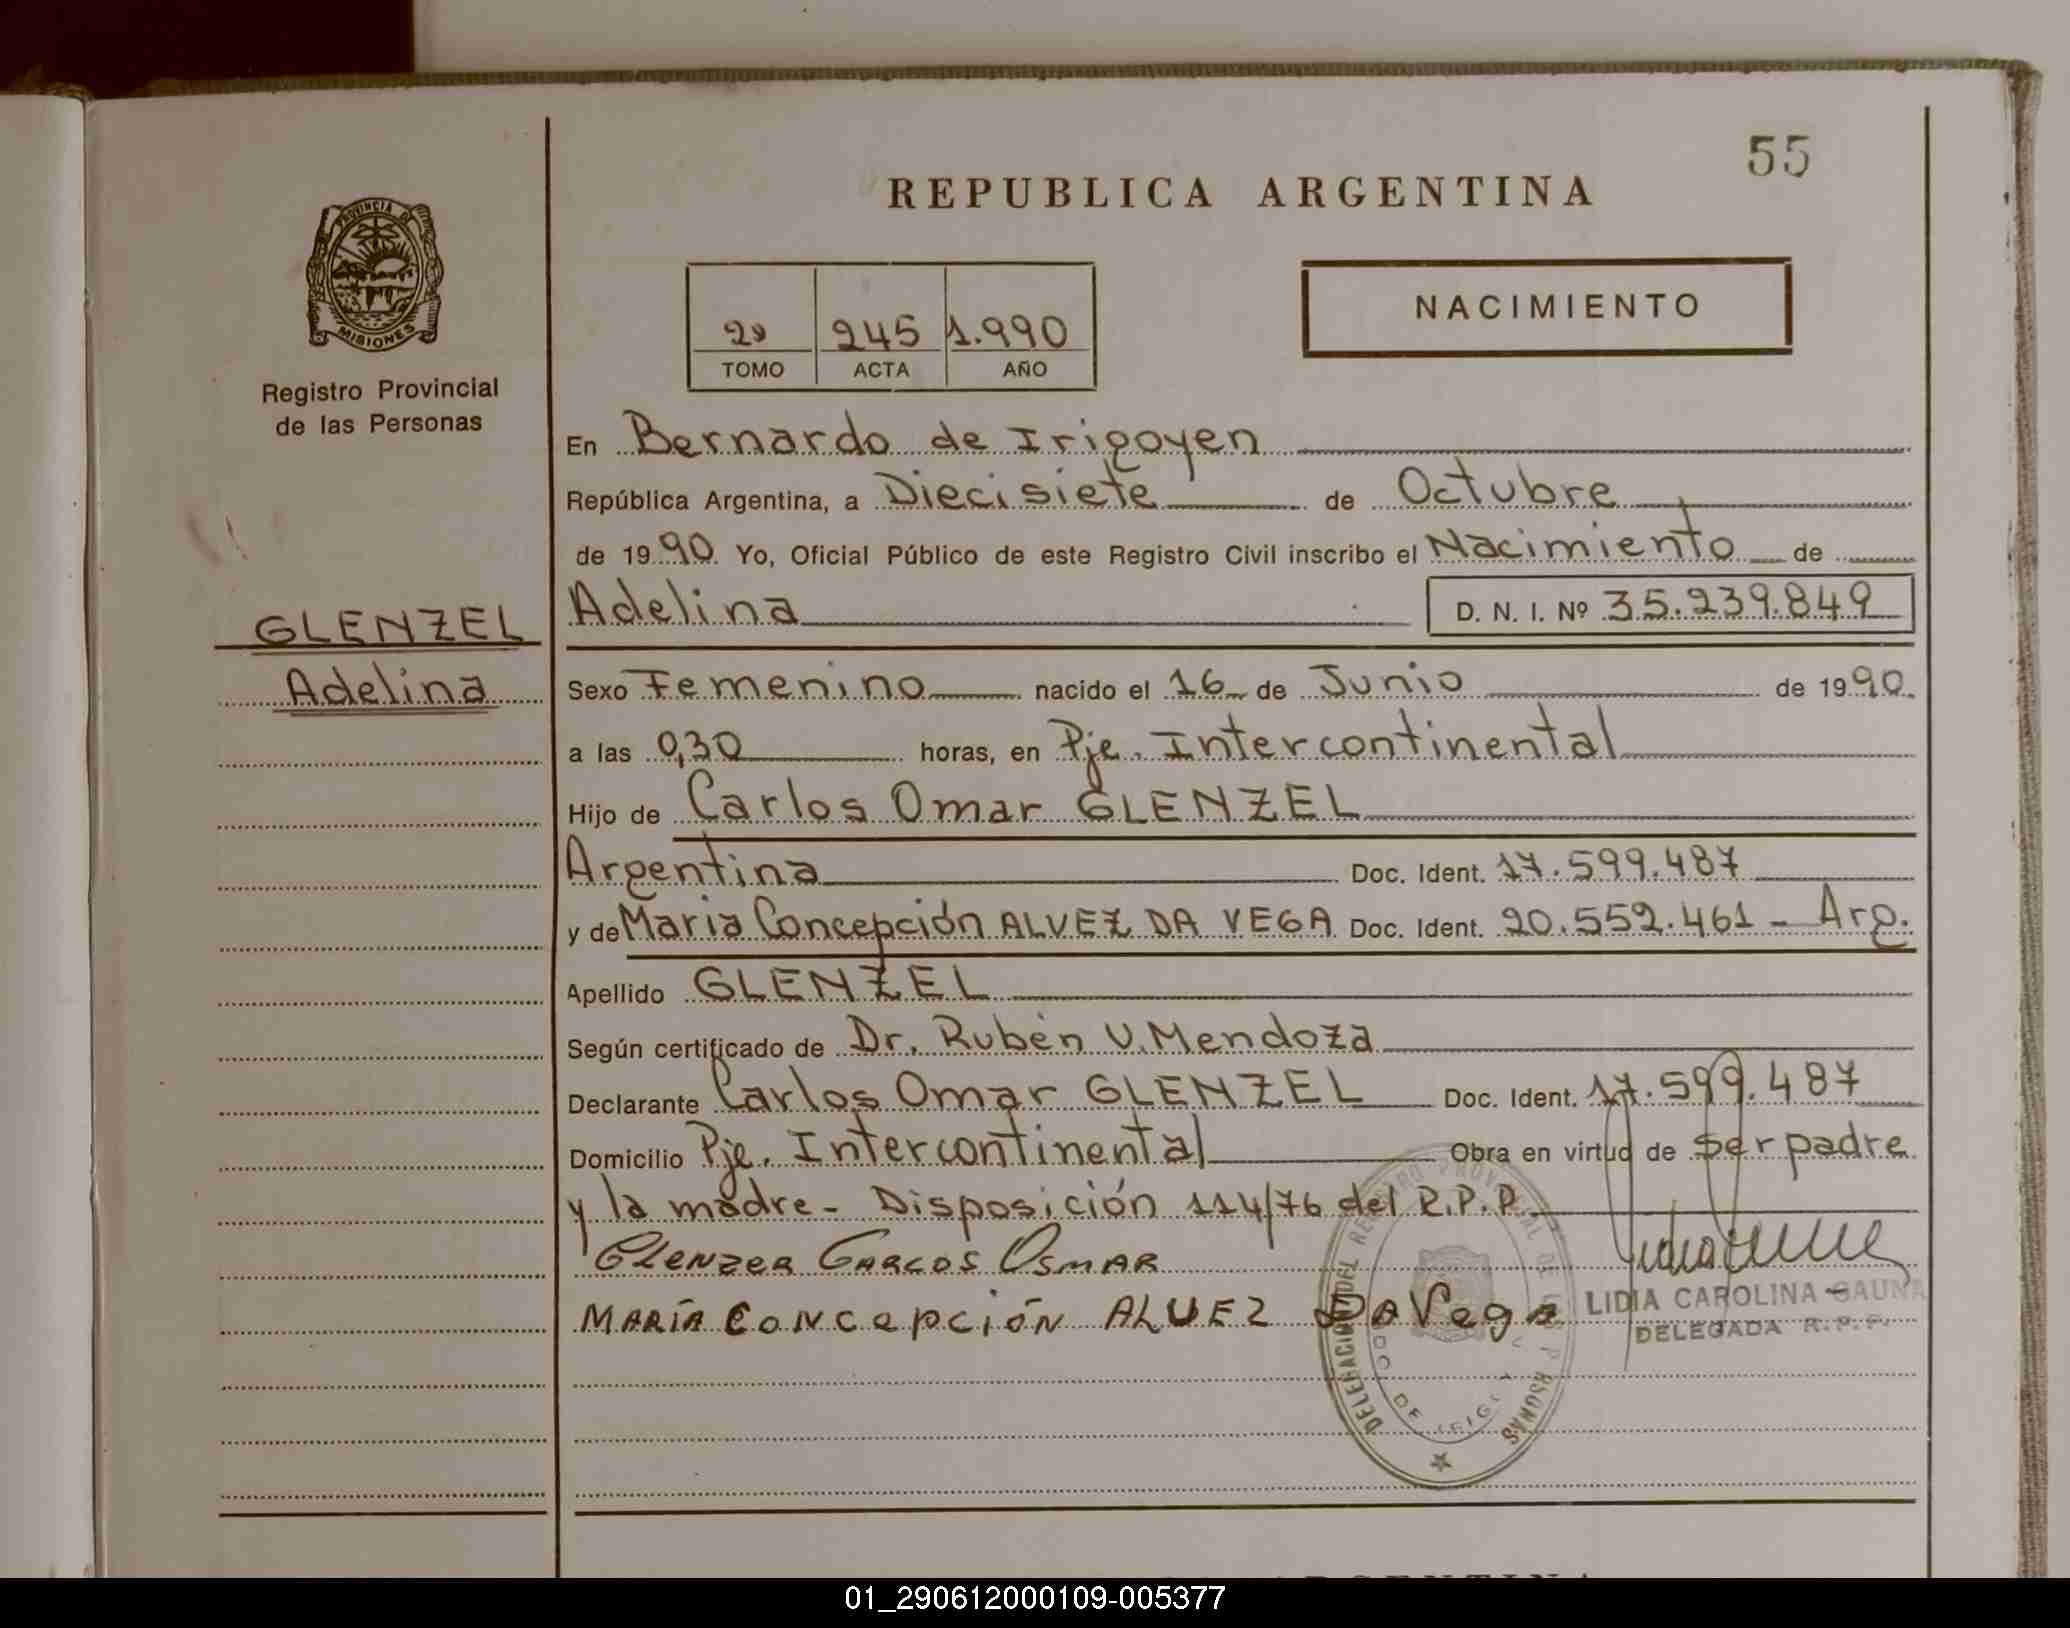 55
REPUBLICA ARGENTINA
PROVINCIA DE
MISIONES
Registro Provincial
de las Personas
2º 245 1.990
TOMO ACTA AÑO
NACIMIENTO
En Bernardo de Irigoyen
República Argentina, a Diecisiete de Octubre
de 1990 Yo, Oficial Público de este Registro Civil inscribo el Nacimiento de
GLENZEL
Adelina
Adelina D. N. I. Nº 35.239.849
Sexo Femenino nacido el 16 de Junio de 1990
a las 0,30 horas, en Pje. Intercontinental
Hijo de Carlos Omar GLENZEL
Argentina Doc. Ident. 17.599.487
y de Maria Concepción ALVEZ DA VEGA Doc. Ident. 20.552.461 - Arg.
Apellido GLENZEL
Según certificado de Dr. Rubén V. Mendoza
Declarante Carlos Omar GLENZEL Doc. Ident. 17.599.487
Domicilio Pje. Intercontinental Obra en virtud de ser padre
y la madre - Disposición 114/76 del R.P.P.
GLENZER CARLOS OSMAR
MARÍA CONCEPCIÓN ALVEZ DA Vega
LIDIA CAROLINA GAUNA
DELEGADA R.P.P.
01_290612000109-005377